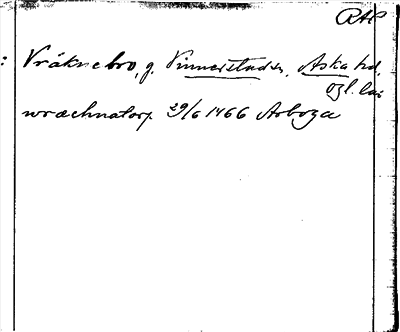 RAP
: Vråknebro, g. Vinnerstads sn, Aska hd,
ögl. län
wræchnatorp 29/6 1466 Arboga